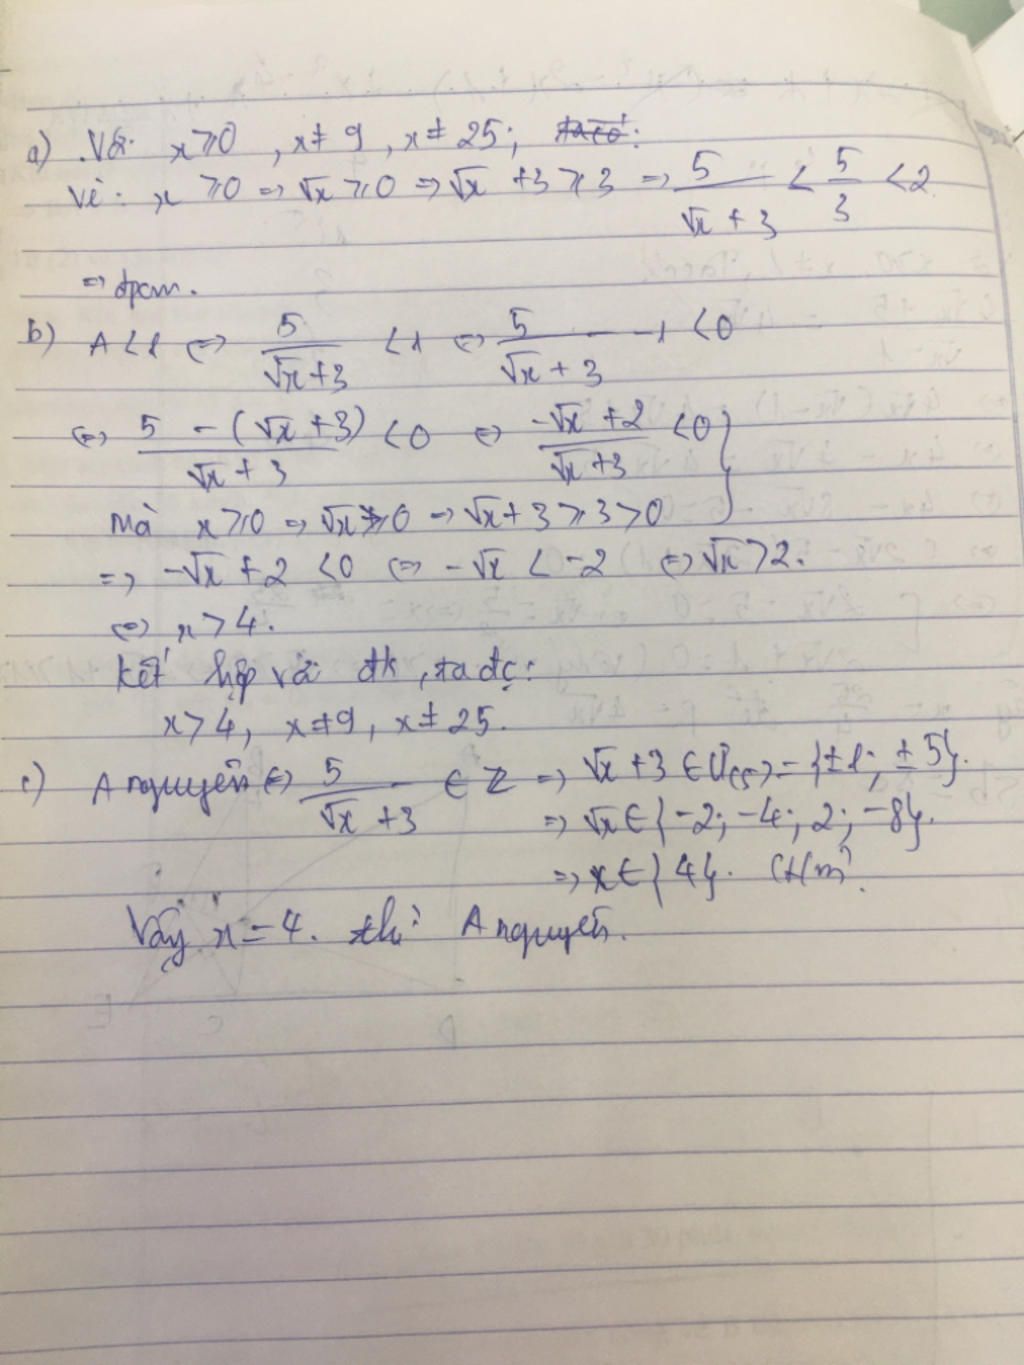 a) Với x ⩾ 0, x ≠ 9, x ≠ 25; ta có:
Vì: x ⩾ 0 => √x ⩾ 0 => √x + 3 ⩾ 3 => 5/(√x + 3) < 5/3 < 2
=> đpcm.
b) A < 1 <=> 5/(√x + 3) < 1 <=> 5/(√x + 3) - 1 < 0
<=> (5 - (√x + 3))/(√x + 3) < 0 <=> (-√x + 2)/(√x + 3) < 0 }
Mà x ⩾ 0 => √x ⩾ 0 => √x + 3 ⩾ 3 > 0
=> -√x + 2 < 0 <=> -√x < -2 <=> √x > 2.
<=> x > 4.
Kết hợp với đk, ta đc:
x > 4, x ≠ 9, x ≠ 25.
c) A nguyên <=> 5/(√x + 3) ∈ Z => √x + 3 ∈ Ư(5) = {±1; ±5}.
=> √x ∈ {-2; -4; 2; -8}.
=> x ∈ {4}. (t/m)
Vậy x = 4. thì A nguyên.